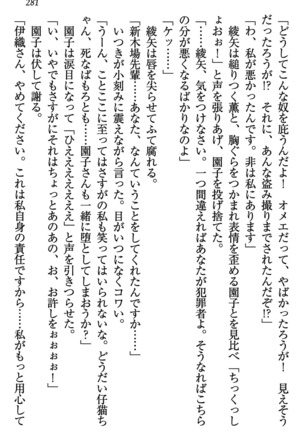 281
「どうしてこんな奴を庇うんだよ! オメエだって、やばかったろうが! 見えそう
だったろうが!? それに、あんな盗み撮りまでされたんだぞ!?」
「わ、私が悪かったんです。非は私にあります」
綾矢は縋りつく薫と、胸ぐらをつかまれ表情を歪める園子とを見比べ「ちっくっし
ょおおー!」と声を張りあげ、園子を投げ捨てた。
「……綾矢、気をつけなさい。一つ間違えればあなたが犯罪者よ。そうなればこちら
の分が悪くなるばかりなのよ」
「ケッ……!」
綾矢は唇を尖らせてふて腐れる。
「新木場先輩……あなた、なんていうことをしてくれたんですか……」
いつきが小刻みに震えながら言った。目がいつになくコワい。
「うーん、ことここに至ってはさすがの私も笑ってられないな。どうだい仔猫ち
ゃん、死なばもろとも……園子さんも一緒に堕としてしまおうか?」
「い、いやでもさすがにそれはちょっとあのあの、お、お許しをぉぉぉぉ!」
園子は涙目になって「ひええええええ」と声を引きつらせた。
園子は伏して謝る。
「伊織さん、やめてください。これは私自身の責任ですから……私がもっと用心して